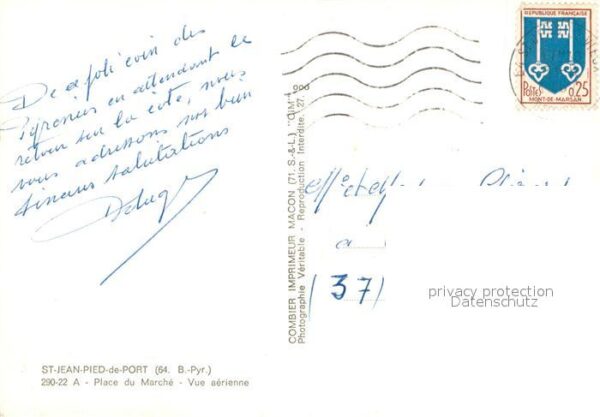 De ce joli coin des
Pyrénées en attendant le
retour sur la côte, nous
vous adressons nos bien
sincères salutations
REPUBLIQUE FRANÇAISE
POSTES 0,25
MONT-DE-MARSAN
à
(37)
COMBIER IMPRIMEUR MACON (71. S.-&-L.) "CIM"
Photographie Véritable - Reproduction Interdite.
privacy protection
Datenschutz
ST-JEAN-PIED-de-PORT (64. B.-Pyr.)
290-22 A - Place du Marché - Vue aérienne